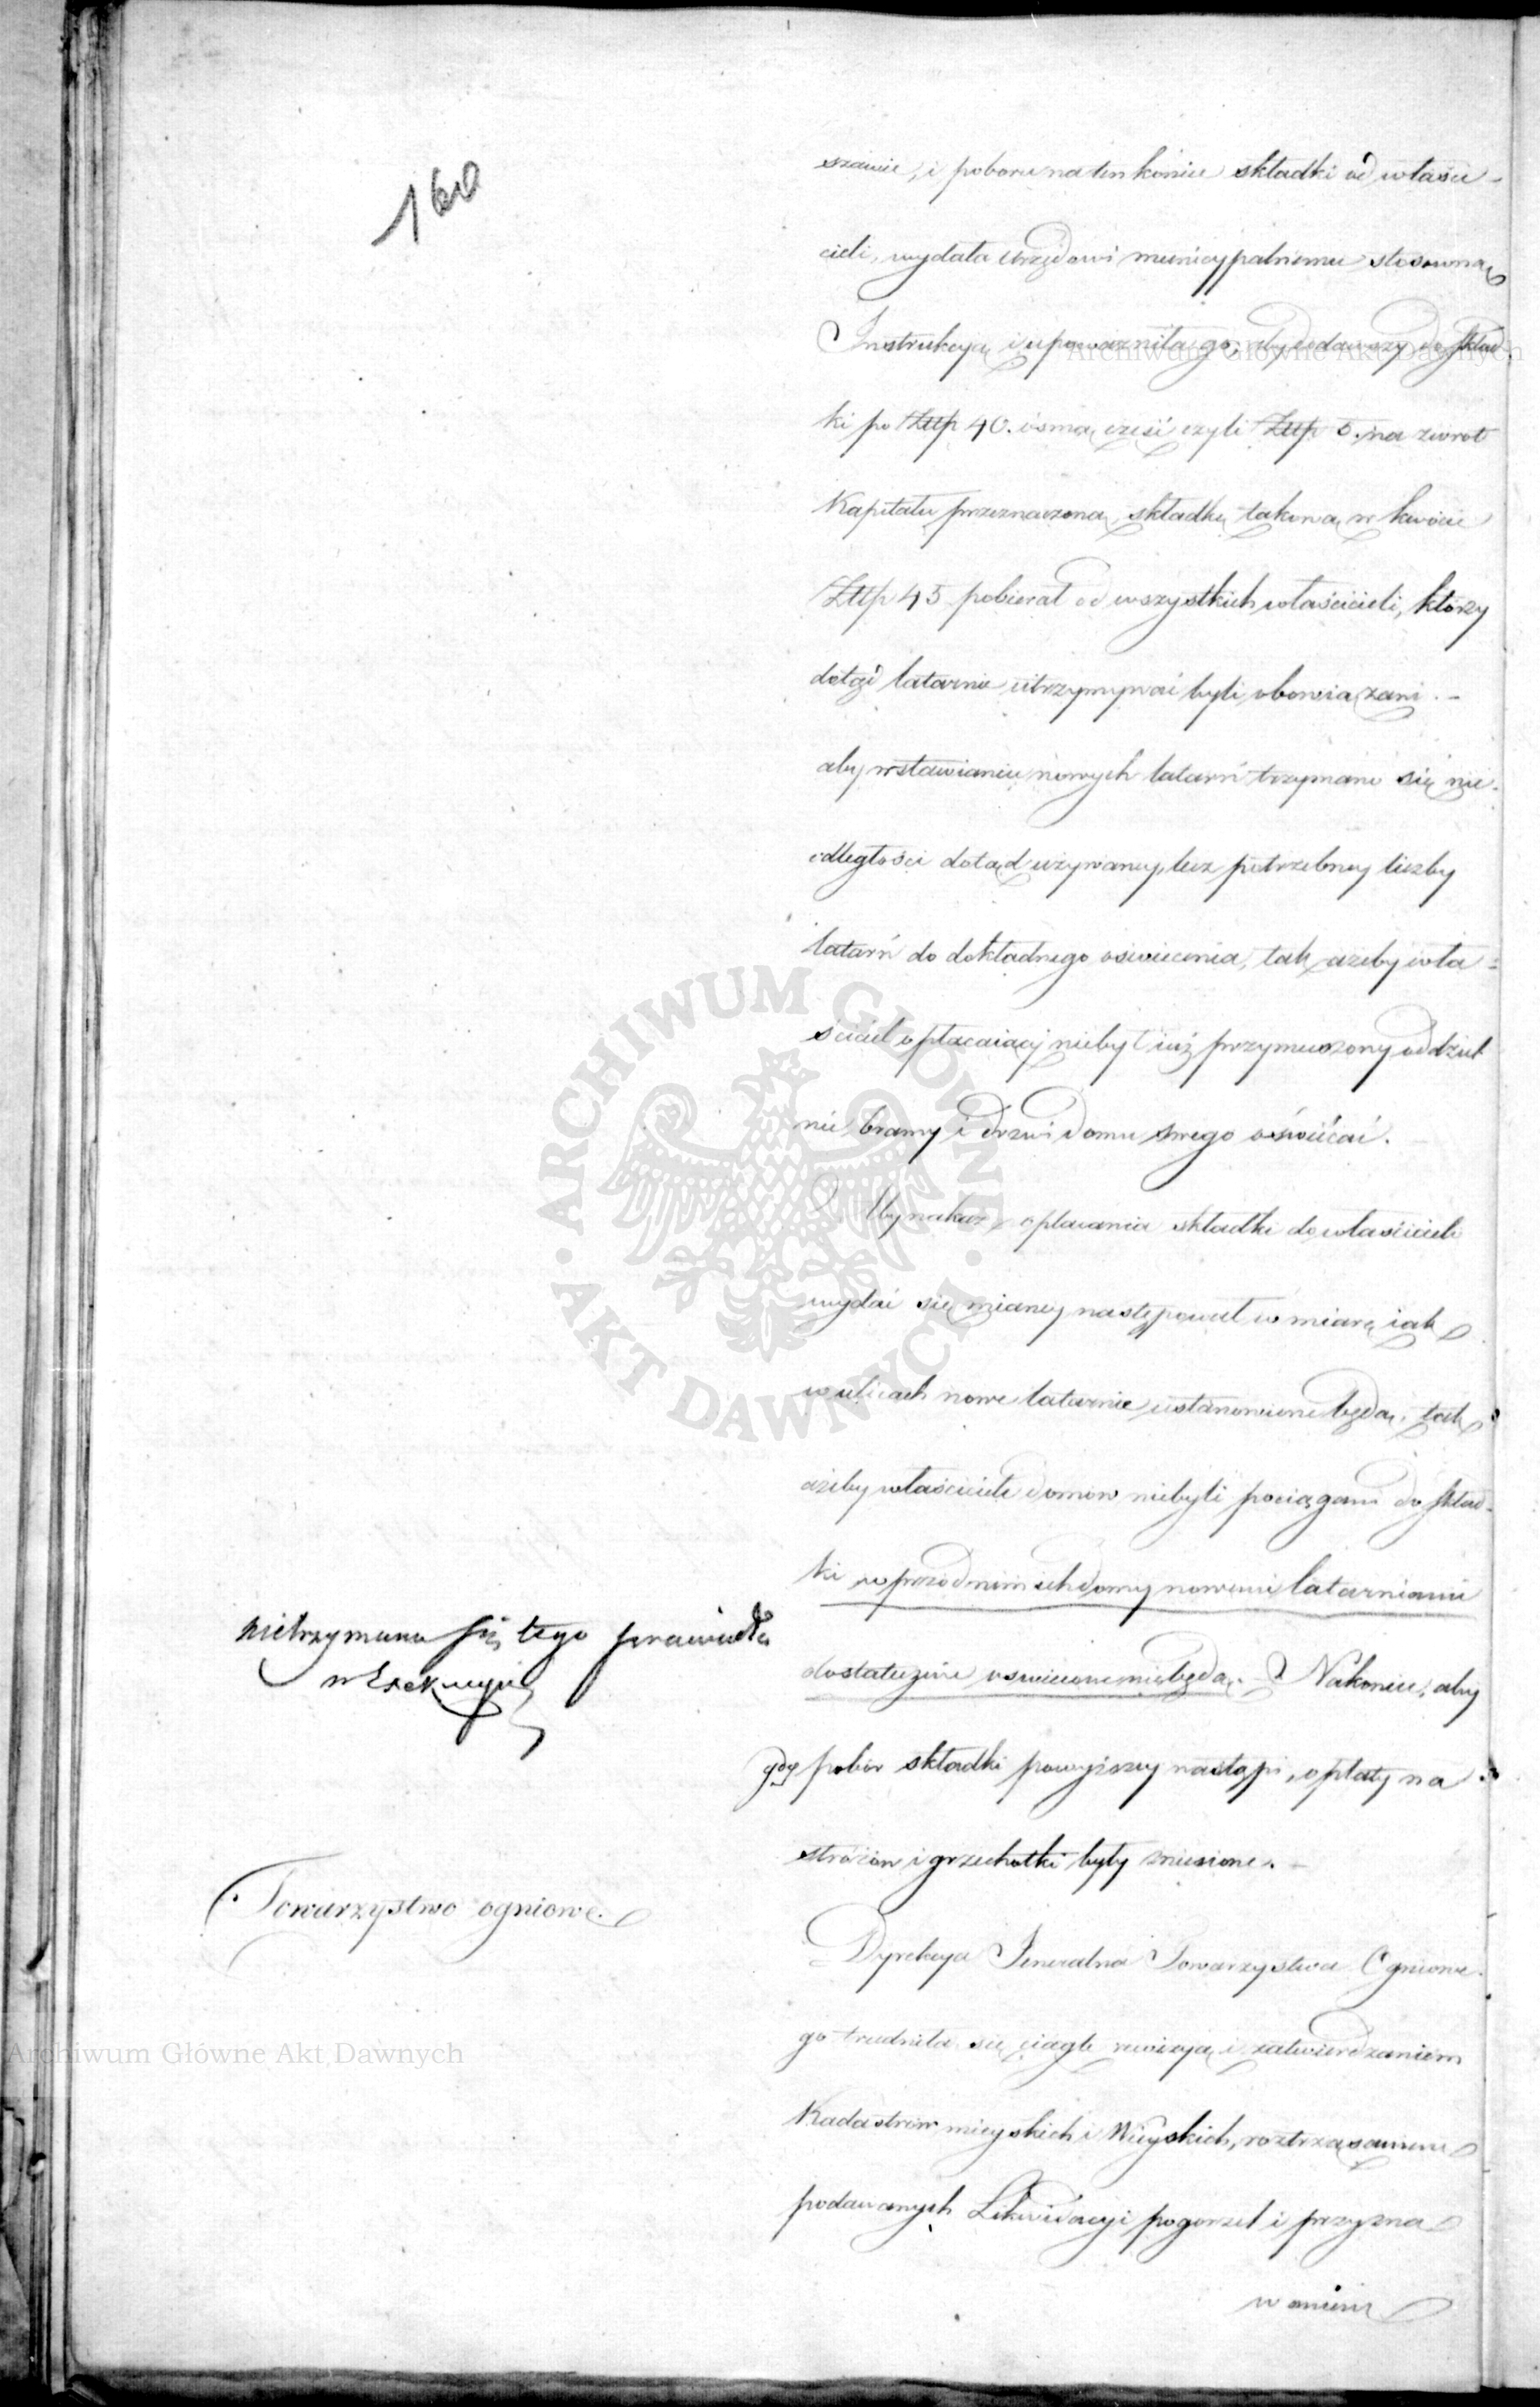 160
szawie, i poboru na ten koniec składki od właści-
cieli, wydała Urzędowi municypalnemu stosowną
Instrukcyą i upoważniła go, aby dodawszy do skład-
ki po Złłp 40. ósmą część czyli Złłp 5. na zwrot
Kapitału przeznaczoną, składkę takową w kwocie
Złłp 45 pobierał od wszystkich właścicieli, którzy
dotąd latarnie utrzymywać byli obowiązani. -
aby w stawianiu nowych latarń trzymano się nie
odległości dotąd używaney, lecz potrzebney liczby
latarń do dokładnego oświecenia, tak ażeby wła=
ściciel opłacaiący niebył iuż przymuszony oddziel
nie bramy i drzwi domu swego oświécać.
Aby nakaz opłacania składki do właścicieli
wydać się mianey następował w miarę iak
w ulicach nowe latarnie ustanowione będą, tak
ażeby właściciele domów niebyli pociągani do skład-
ki wprzód nim ich domy nowemi latarniami
dostatecznie oswiecone niebędą. - Nakoniec, aby
gdy pobór składki powyższey nastąpi, opłaty na
stróżów i grzechotki były zniesione. -
nietrzymano się tego prawidła
w Exekucyi
Towarzystwo ogniowe.
Dyrekcya Jeneralna Towarzystwa Ogniowe-
go trudniła się ciągle rewizyą i zatwierdzaniem
Kadastrów mieyskich i Wieyskich, roztrząsaniem
podawanych Likwidacyi pogorzel i przyzna
waniem
Archiwum Główne Akt Dawnych
Archiwum Główne Akt Dawnych
ARCHIWUM GŁÓWNE • AKT DAWNYCH •